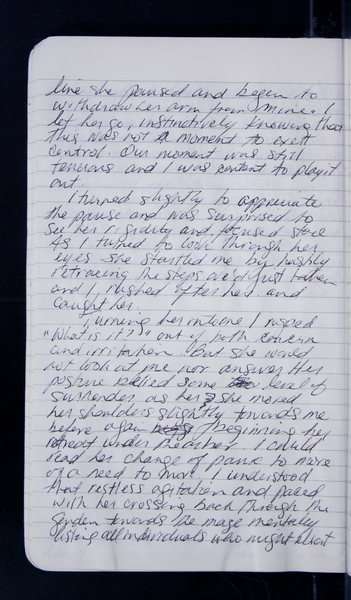 line she paused and began to
withdraw her arm from mine. I
let her go, instinctively knowing that
this was not a moment to exert
control. Our moment was still
tenuous and I was content to play it
out.
I turned slightly to appreciate
the pause and was surprised to
see her rigidity and focused stare
As I turned to look through her
eyes she startled me by hastily
retracing the steps we'd just taken
and I rushed after her and
caught her.
Turning her I rasped
"What is it?" out of both concern
and irritation. But she would
not look at me nor answer. Her
posture belied some level of
surrender as her she moved
her shoulders slightly towards me
before again beginning her
retreat under the I could
read her change of panic to more
of a need to move. I understood
that restless agitation and paced
with her crossing back through the
garden towards the maze mentally
listing all individuals who might